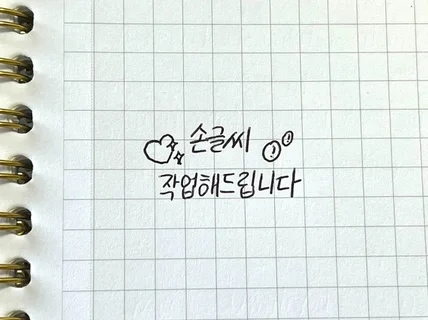 손글씨
작업해드립니다